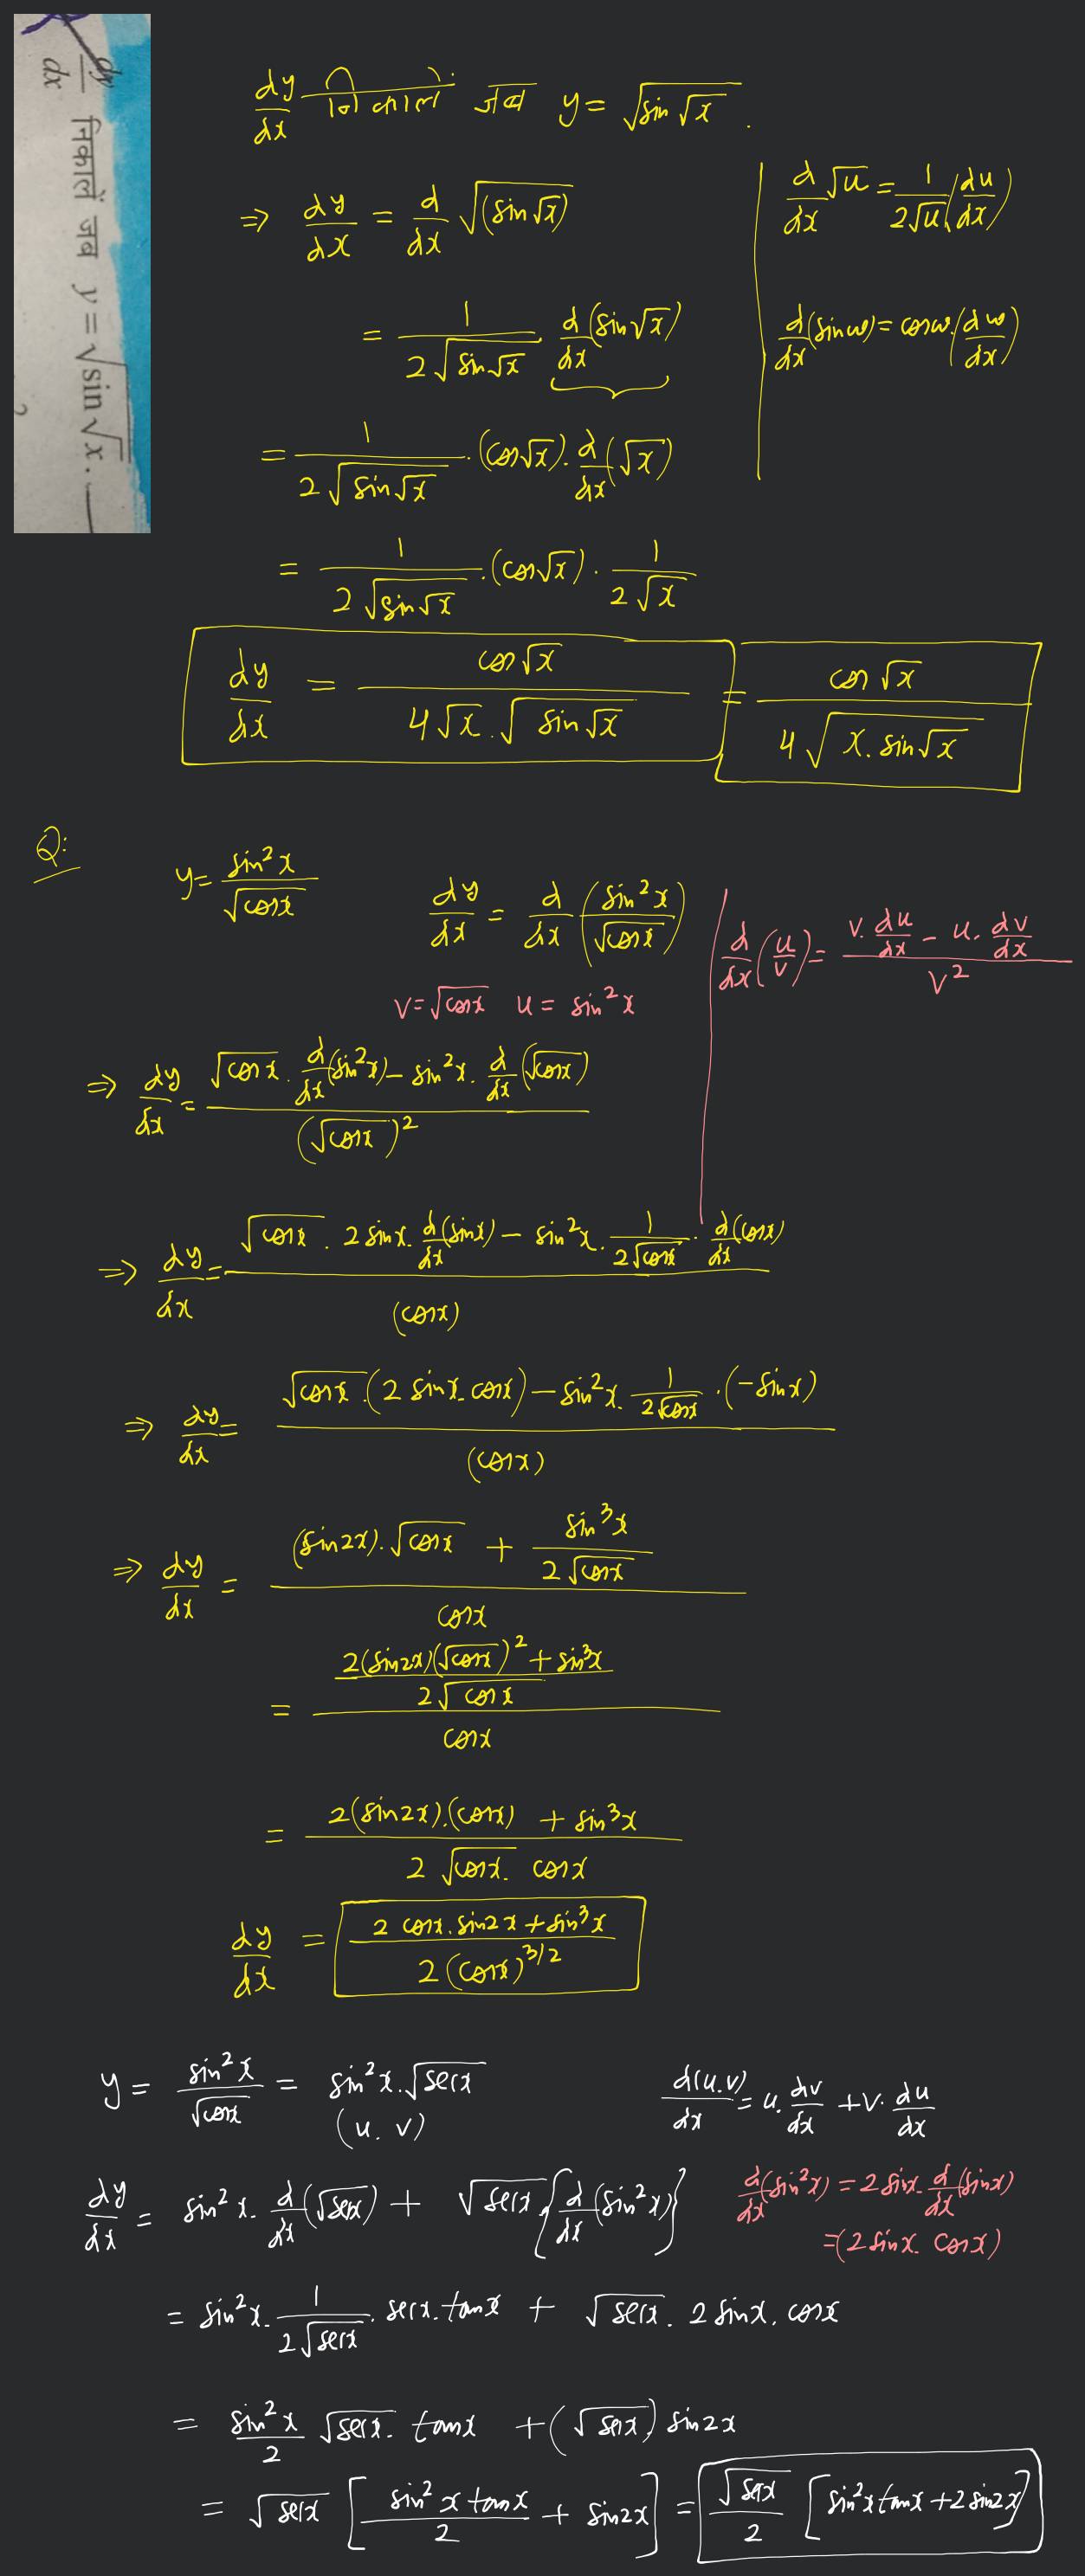 dy/dx निकालें जब y = √(sin√x).
dy/dx निकालें जब y = √(sin√x).
⇒ dy/dx = d/dx √(sin√x)
d/dx √u = 1/(2√u) (du/dx)
= 1/(2√(sin√x)) · d/dx (sin√x)
d/dx (sin w) = cos w · (dw/dx)
= 1/(2√(sin√x)) · (cos√x) · d/dx (√x)
= 1/(2√(sin√x)) · (cos√x) · 1/(2√x)
dy/dx = cos√x / (4√x · √(sin√x)) = cos√x / (4√(x · sin√x))
Q:
y = sin²x / √(cosx)
dy/dx = d/dx (sin²x / √(cosx))
d/dx (u/v) = (v · du/dx - u · dv/dx) / v²
v = √(cosx) u = sin²x
⇒ dy/dx = (√(cosx) · d/dx (sin²x) - sin²x · d/dx (√(cosx))) / (√(cosx))²
⇒ dy/dx = (√(cosx) · 2 sinx · d/dx (sinx) - sin²x · 1/(2√(cosx)) · d/dx (cosx)) / (cosx)
⇒ dy/dx = (√(cosx) · (2 sinx · cosx) - sin²x · 1/(2√(cosx)) · (-sinx)) / (cosx)
⇒ dy/dx = ((sin2x) · √(cosx) + sin³x / (2√(cosx))) / cosx
= ((2(sin2x)(√(cosx))² + sin³x) / (2√(cosx))) / cosx
= (2(sin2x) · (cosx) + sin³x) / (2√(cosx) · cosx)
dy/dx = (2 cosx · sin2x + sin³x) / (2(cosx)^(3/2))
y = sin²x / √(cosx) = sin²x · √(secx)
(u. v)
d(u.v)/dx = u · dv/dx + v · du/dx
dy/dx = sin²x · d/dx (√(secx)) + √(secx) {d/dx (sin²x)}
d/dx (sin²x) = 2 sinx · d/dx (sinx)
= (2 sinx · cosx)
= sin²x · 1/(2√(secx)) · secx · tanx + √(secx) · 2 sinx · cosx
= sin²x/2 √(secx) · tanx + (√(secx)) sin2x
= √(secx) [sin²x tanx / 2 + sin2x] = √(secx)/2 [sin²x tanx + 2 sin2x]